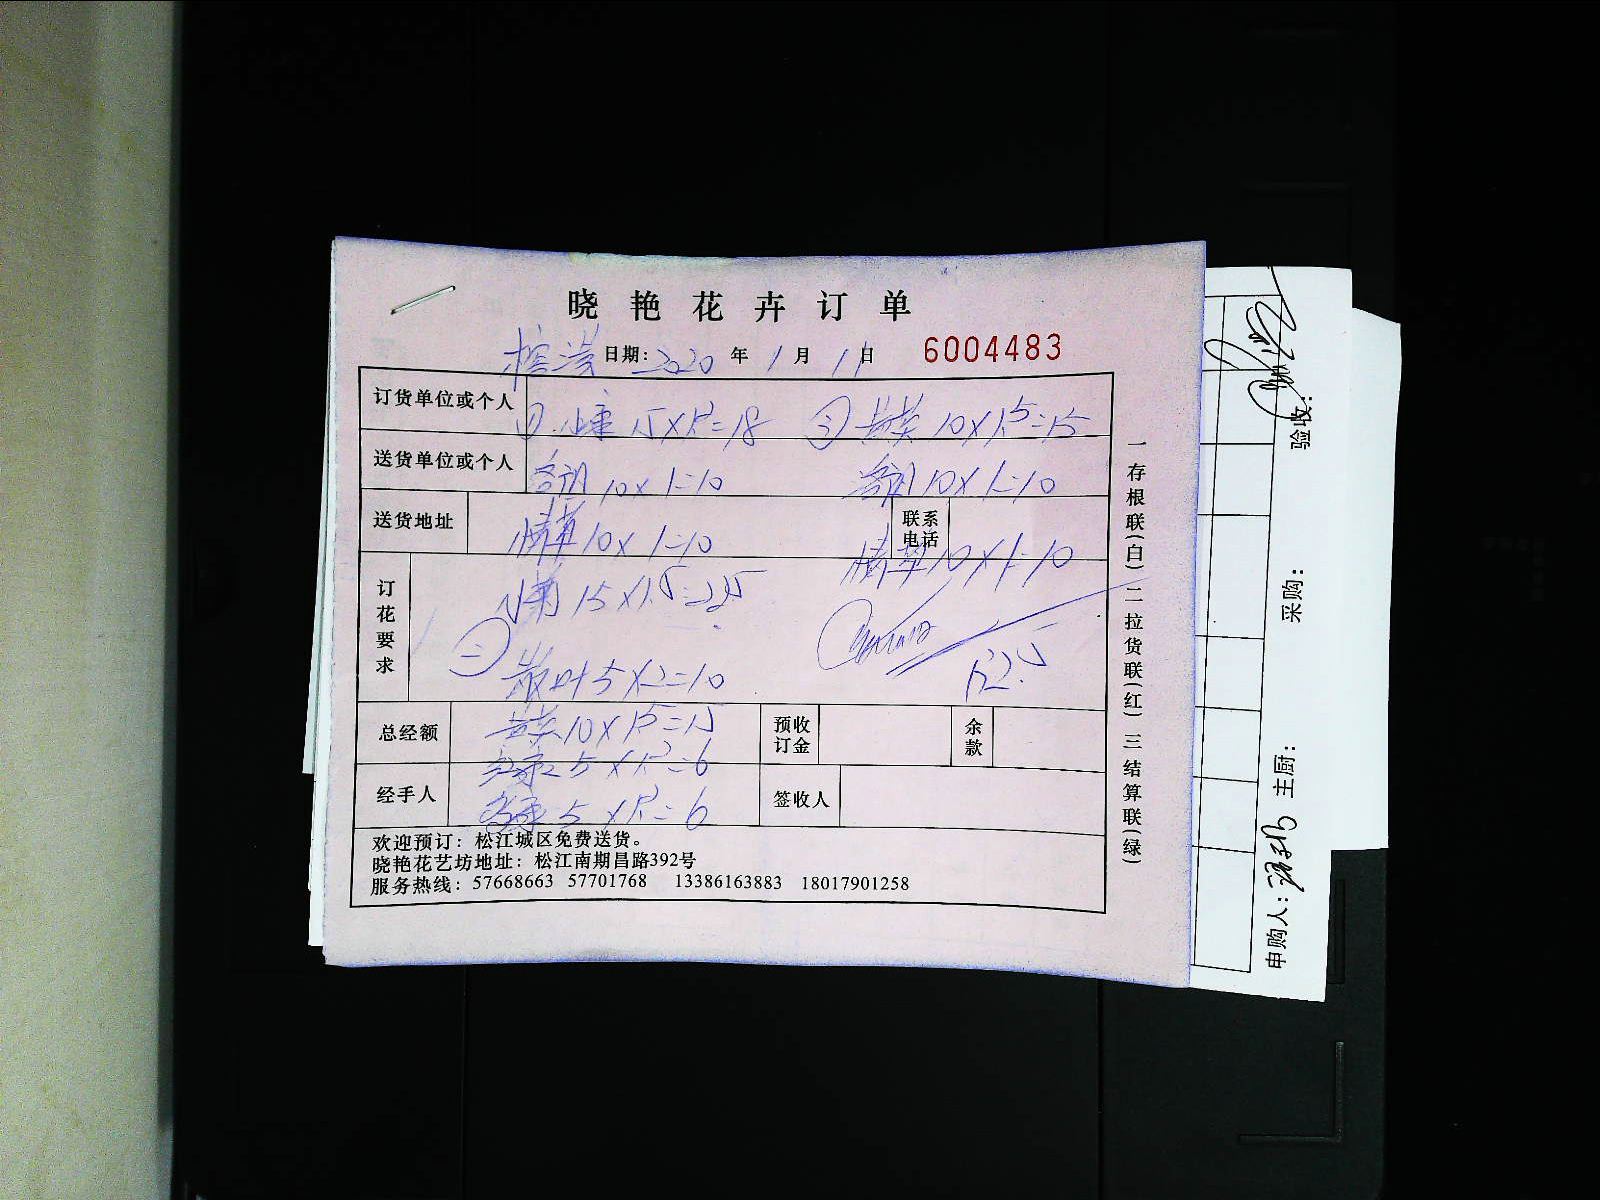 晓艳花卉订单
日期: 2020 年 1 月 11 日 6004483
订货单位或个人
① 15×1.2=18 ③ 黄英 10×1.5=15
送货单位或个人
10×1=10 10×1=10
送货地址 情草 10×1=10 联系电话 情草 10×1=10
订花要求
15×1.5=22.5
二 散叶 5×2=10
总经额 黄英 10×1.5=15 预收订金 余款
5×1.2=6
经手人 签收人
5×1.2=6
欢迎预订：松江城区免费送货。
晓艳花艺坊地址：松江南期昌路392号
服务热线：57668663 57701768 13386163883 18017901258
一存根联(白) 二拉货联(红) 三结算联(绿)
申购人: 主厨: 采购: 验收: